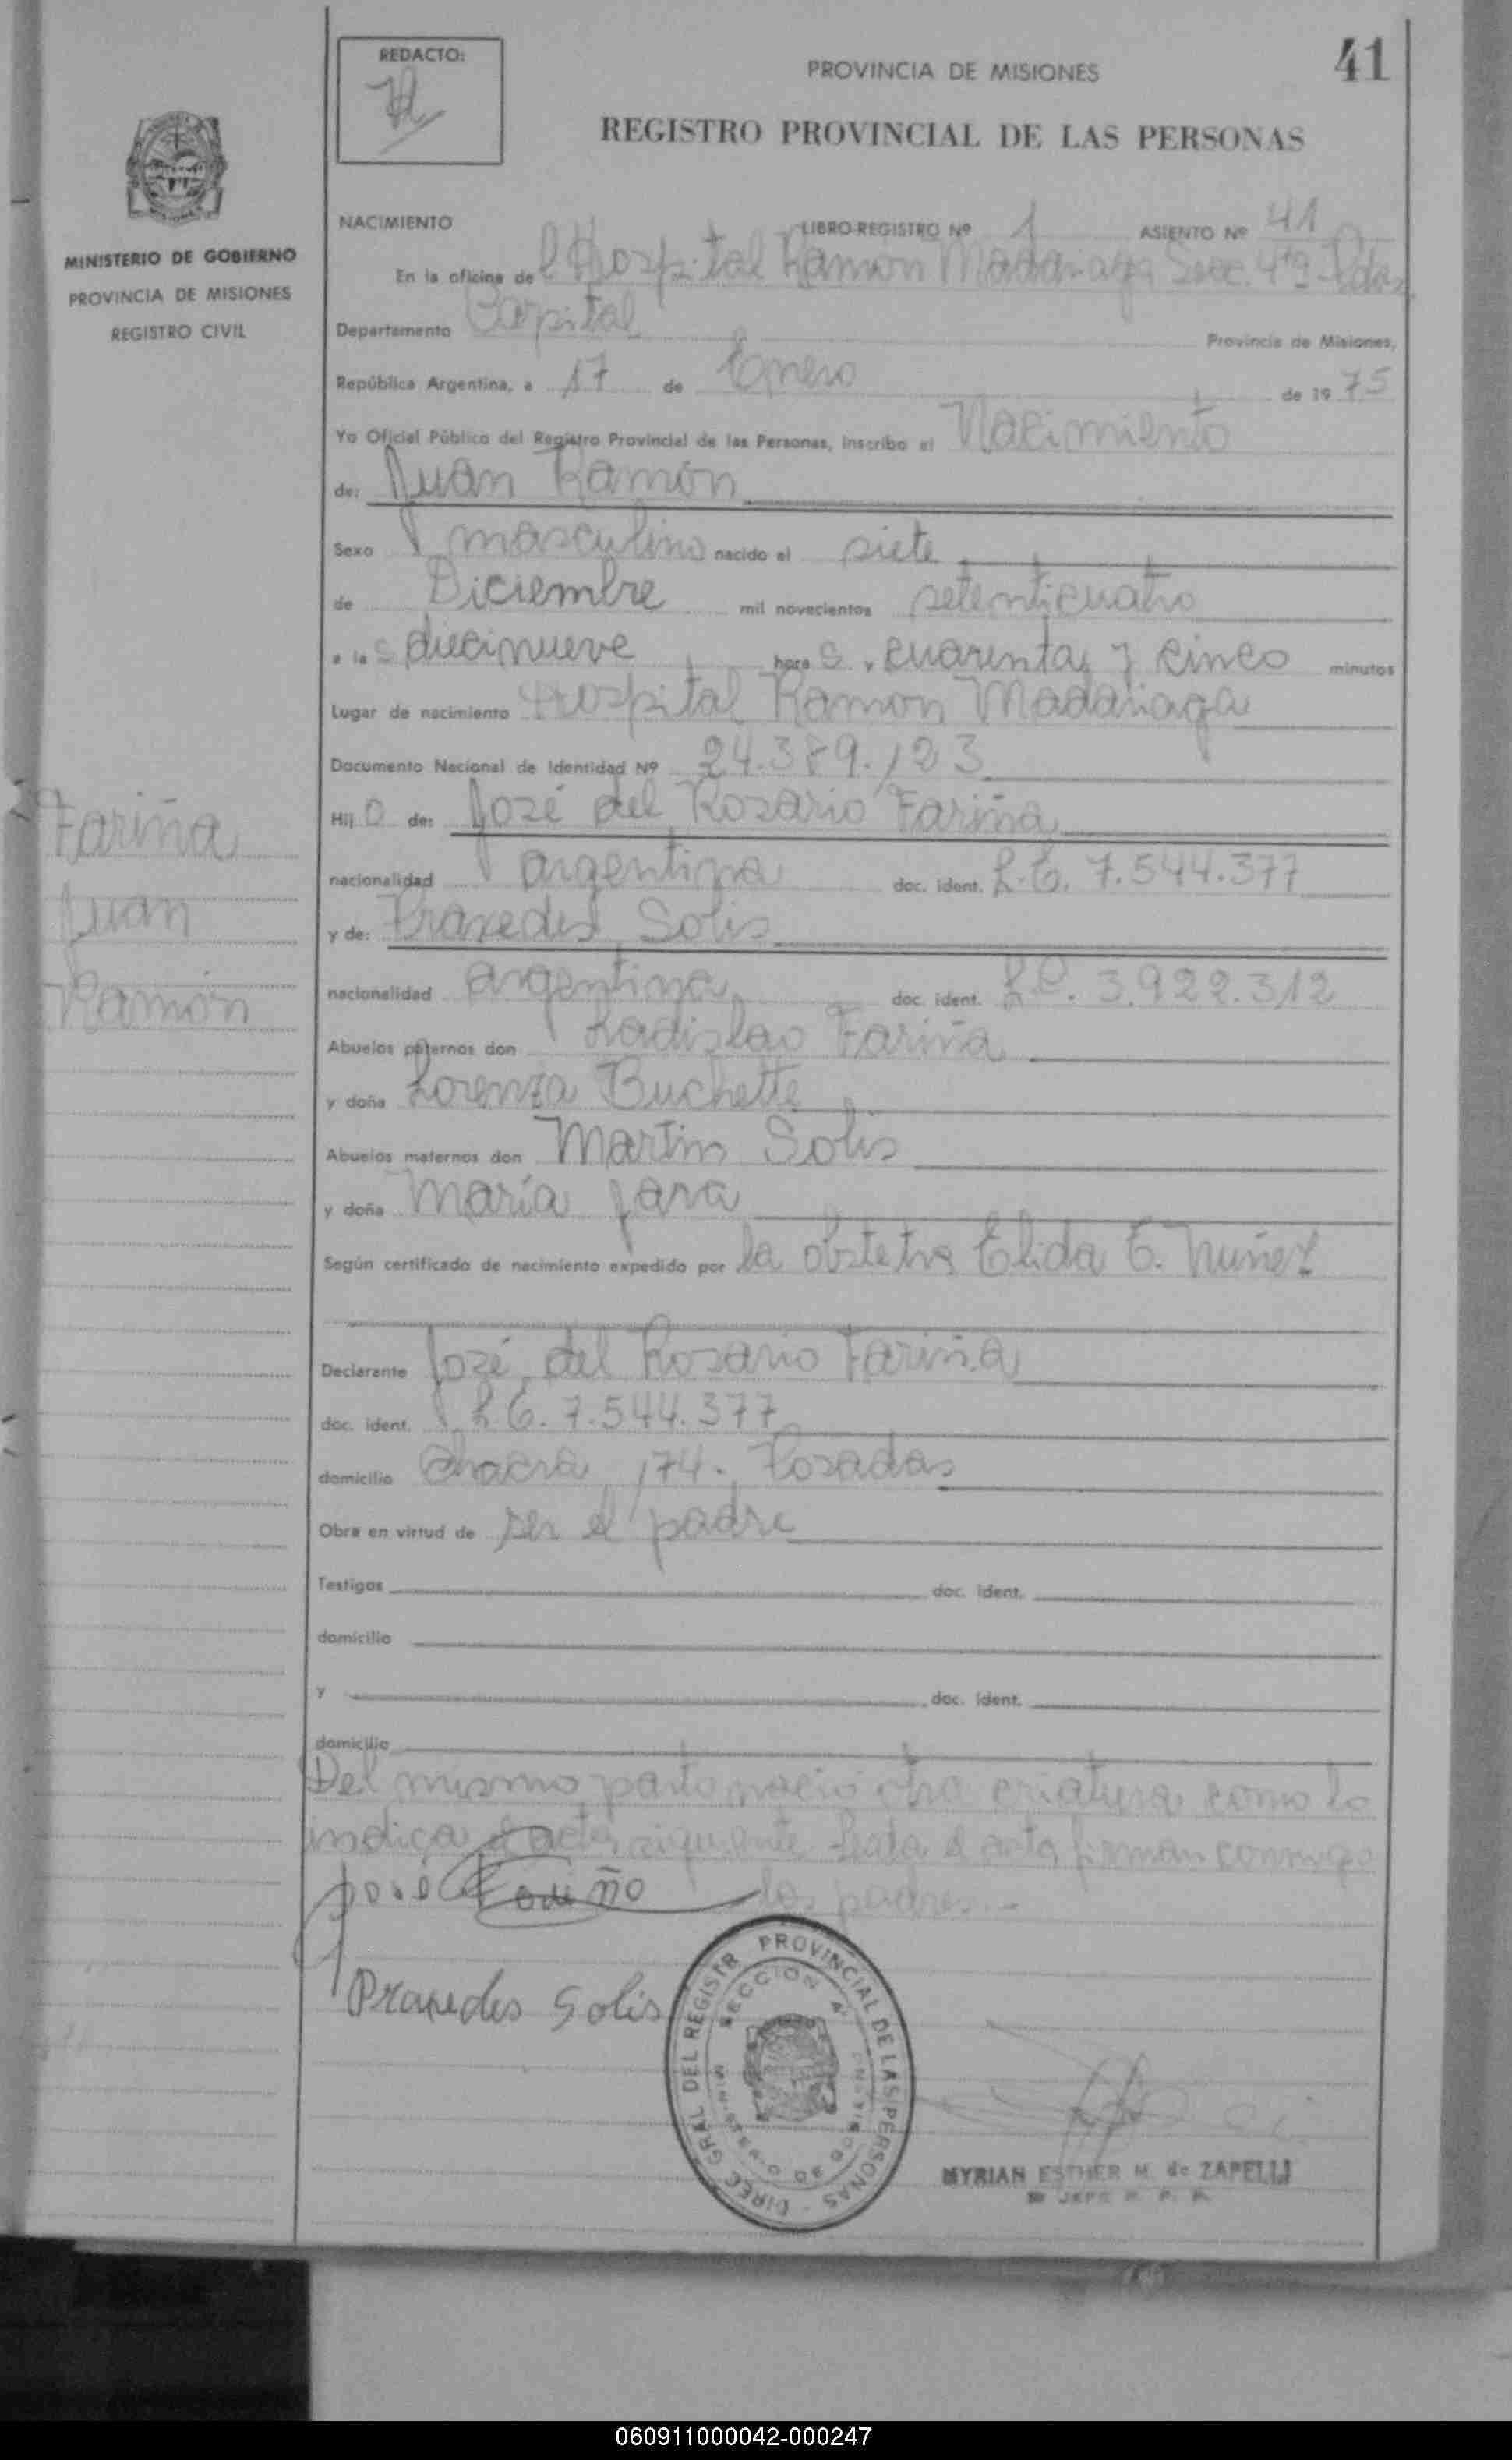 REDACTO:
PROVINCIA DE MISIONES
41
REGISTRO PROVINCIAL DE LAS PERSONAS
MINISTERIO DE GOBIERNO
PROVINCIA DE MISIONES
REGISTRO CIVIL
NACIMIENTO LIBRO-REGISTRO Nº 1 ASIENTO Nº 41
En la oficina del Hospital Ramon Madariaga Secc. 4ta Pdas
Departamento Capital Provincia de Misiones,
República Argentina, a 17 de Enero de 1975
Yo Oficial Público del Registro Provincial de las Personas, inscribo el Nacimiento
de: Juan Ramón
Sexo masculino nacido el siete
de Diciembre mil novecientos setenticuatro
a las diecinueve horas, cuarenta y cinco minutos
Lugar de nacimiento Hospital Ramon Madariaga
Documento Nacional de Identidad Nº 24.389.123
Hijo de: José del Rosario Fariña
nacionalidad argentina doc. ident. L.E. 7.544.377
y de: Praxedes Solis
nacionalidad argentina doc. ident. L.C. 3.922.312
Abuelos paternos don Ladislao Fariña
y doña Lorenza Buchette
Abuelos maternos don Martin Solis
y doña María Jara
Según certificado de nacimiento expedido por la obstetra Elida E. Nuñez
Declarante José del Rosario Fariña
doc. ident. L.E. 7.544.377
domicilio Chacra 174. Posadas
Obra en virtud de ser el padre
Testigos doc. ident.
domicilio
y doc. ident.
domicilio
Del mismo parto nació otra criatura como lo
indica el acta siguiente leida el acta firman conmigo
los padres.-
Fariña
Juan
Ramón
José
Praxedes Solis
DIREC. GRAL DEL REGISTR PROVINCIAL DE LAS PERSONAS
SECCION 4ª
MYRIAN ESTHER M. de ZAPELLI
JEFE R. P. P.
060911000042-000247